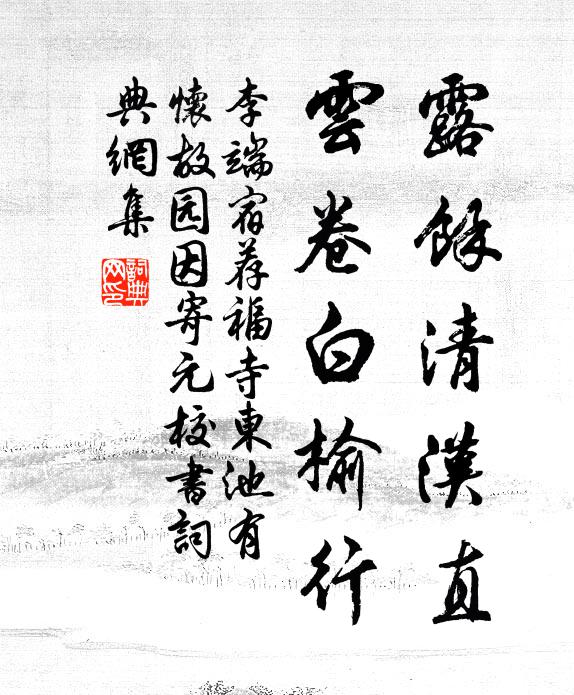 露餘清漢直
雲卷白榆行
李端宿荐福寺東池有
懷故园因寄元校書詞
典網集
詞典網印